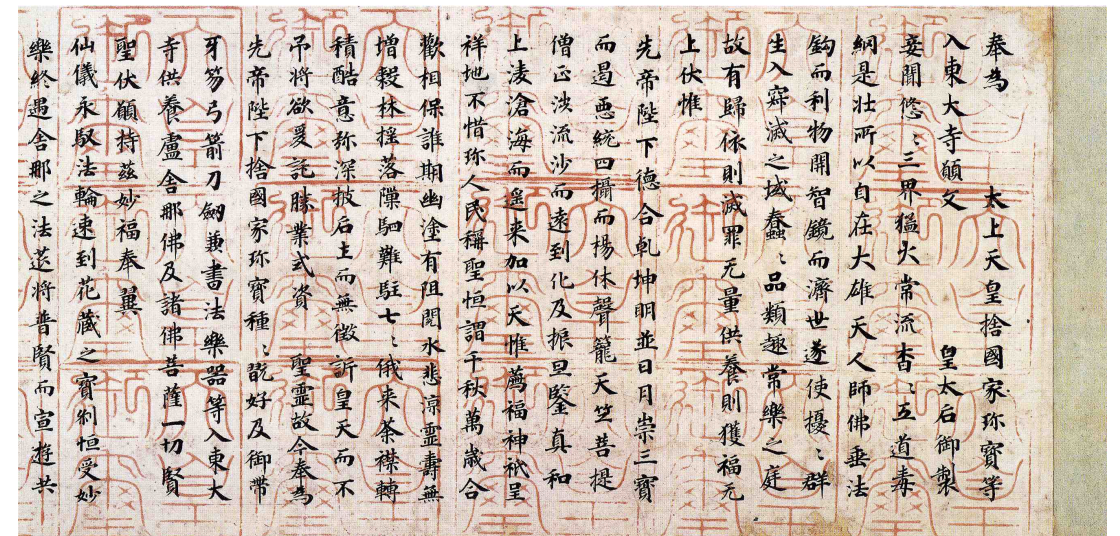 奉為　太上天皇捨國家珎寶等
入東大寺願文　皇太后御製
妾聞悠〻三界猛火常流杳〻五道毒
網是壯所以自在大雄天人師佛垂法
鈎而利物開智鏡而濟世遂使擾〻群
生入寂滅之域蠢〻品類趣常樂之庭
故有歸依則滅罪无量供養則獲福无
上伏惟
先帝陛下德合乹坤明並日月崇三寶
而遏惡統四攝而楊休聲籠天竺菩提
僧正渉流沙而遠到化及振旦鑒真和
上凌滄海而遥来加以天惟薦福神祇呈
祥地不惜珎人民稱聖恒謂千秋萬歳合
歡相保誰期幽塗有阻閱水悲涼靈壽無
増穀林揺落隟駟難駐七〻俄来荼襟轉
積酷意弥深披后土而無徴訴皇天而不
吊将欲爰託勝業式資　聖靈故今奉為
先帝陛下捨國家珎寶種〻翫好及御帶
牙笏弓箭刀劔兼書法樂器等入東大
寺供養盧舍那佛及諸佛菩薩一切賢
聖伏願持茲妙福奉翼
仙儀永馭法輪速到花蔵之寶刹恒受妙
樂終遇舍那之法莚将普賢而宣遊共